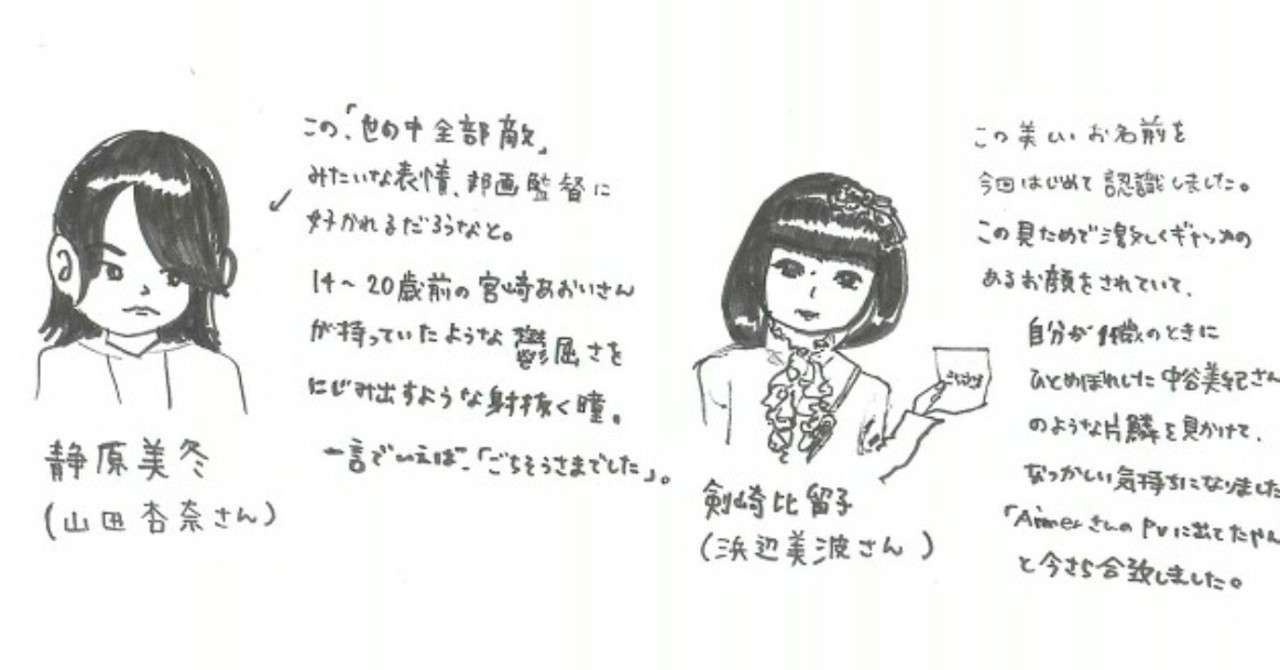 この、「世の中全部敵」
みたいな表情、邦画監督に
好かれるだろうなと。
14〜20歳前の宮崎あおいさん
が持っていたような鬱屈さを
にじみ出すような射抜く瞳。
一言でいえば、「ごちそうさまでした」。
静原美冬
(山田杏奈さん)
この美しいお名前を
今回はじめて認識しました。
この見ためで激しくギャップの
あるお顔をされていて、
自分が歳のときに
ひとめぼれした中谷美紀さん
のような片鱗を見かけて、
なつかしい気持ちになりました
「AimerさんのPVに出てたやん
と今さら合致しました。
剣崎比留子
(浜辺美波さん)